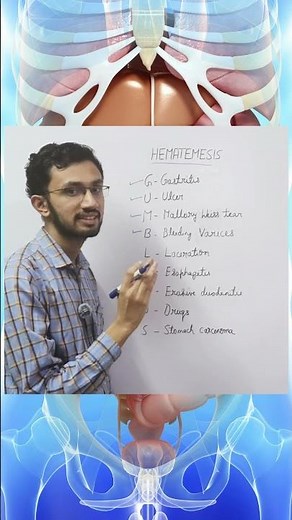 HEMATEMESIS
G - Gastritis
U - Ulcer
M - Mallory Weiss tear
B - Bleeding Varices
L - Laceration
Esophagitis
Erosive duodenitis
- Drugs
S - Stomach carcinoma